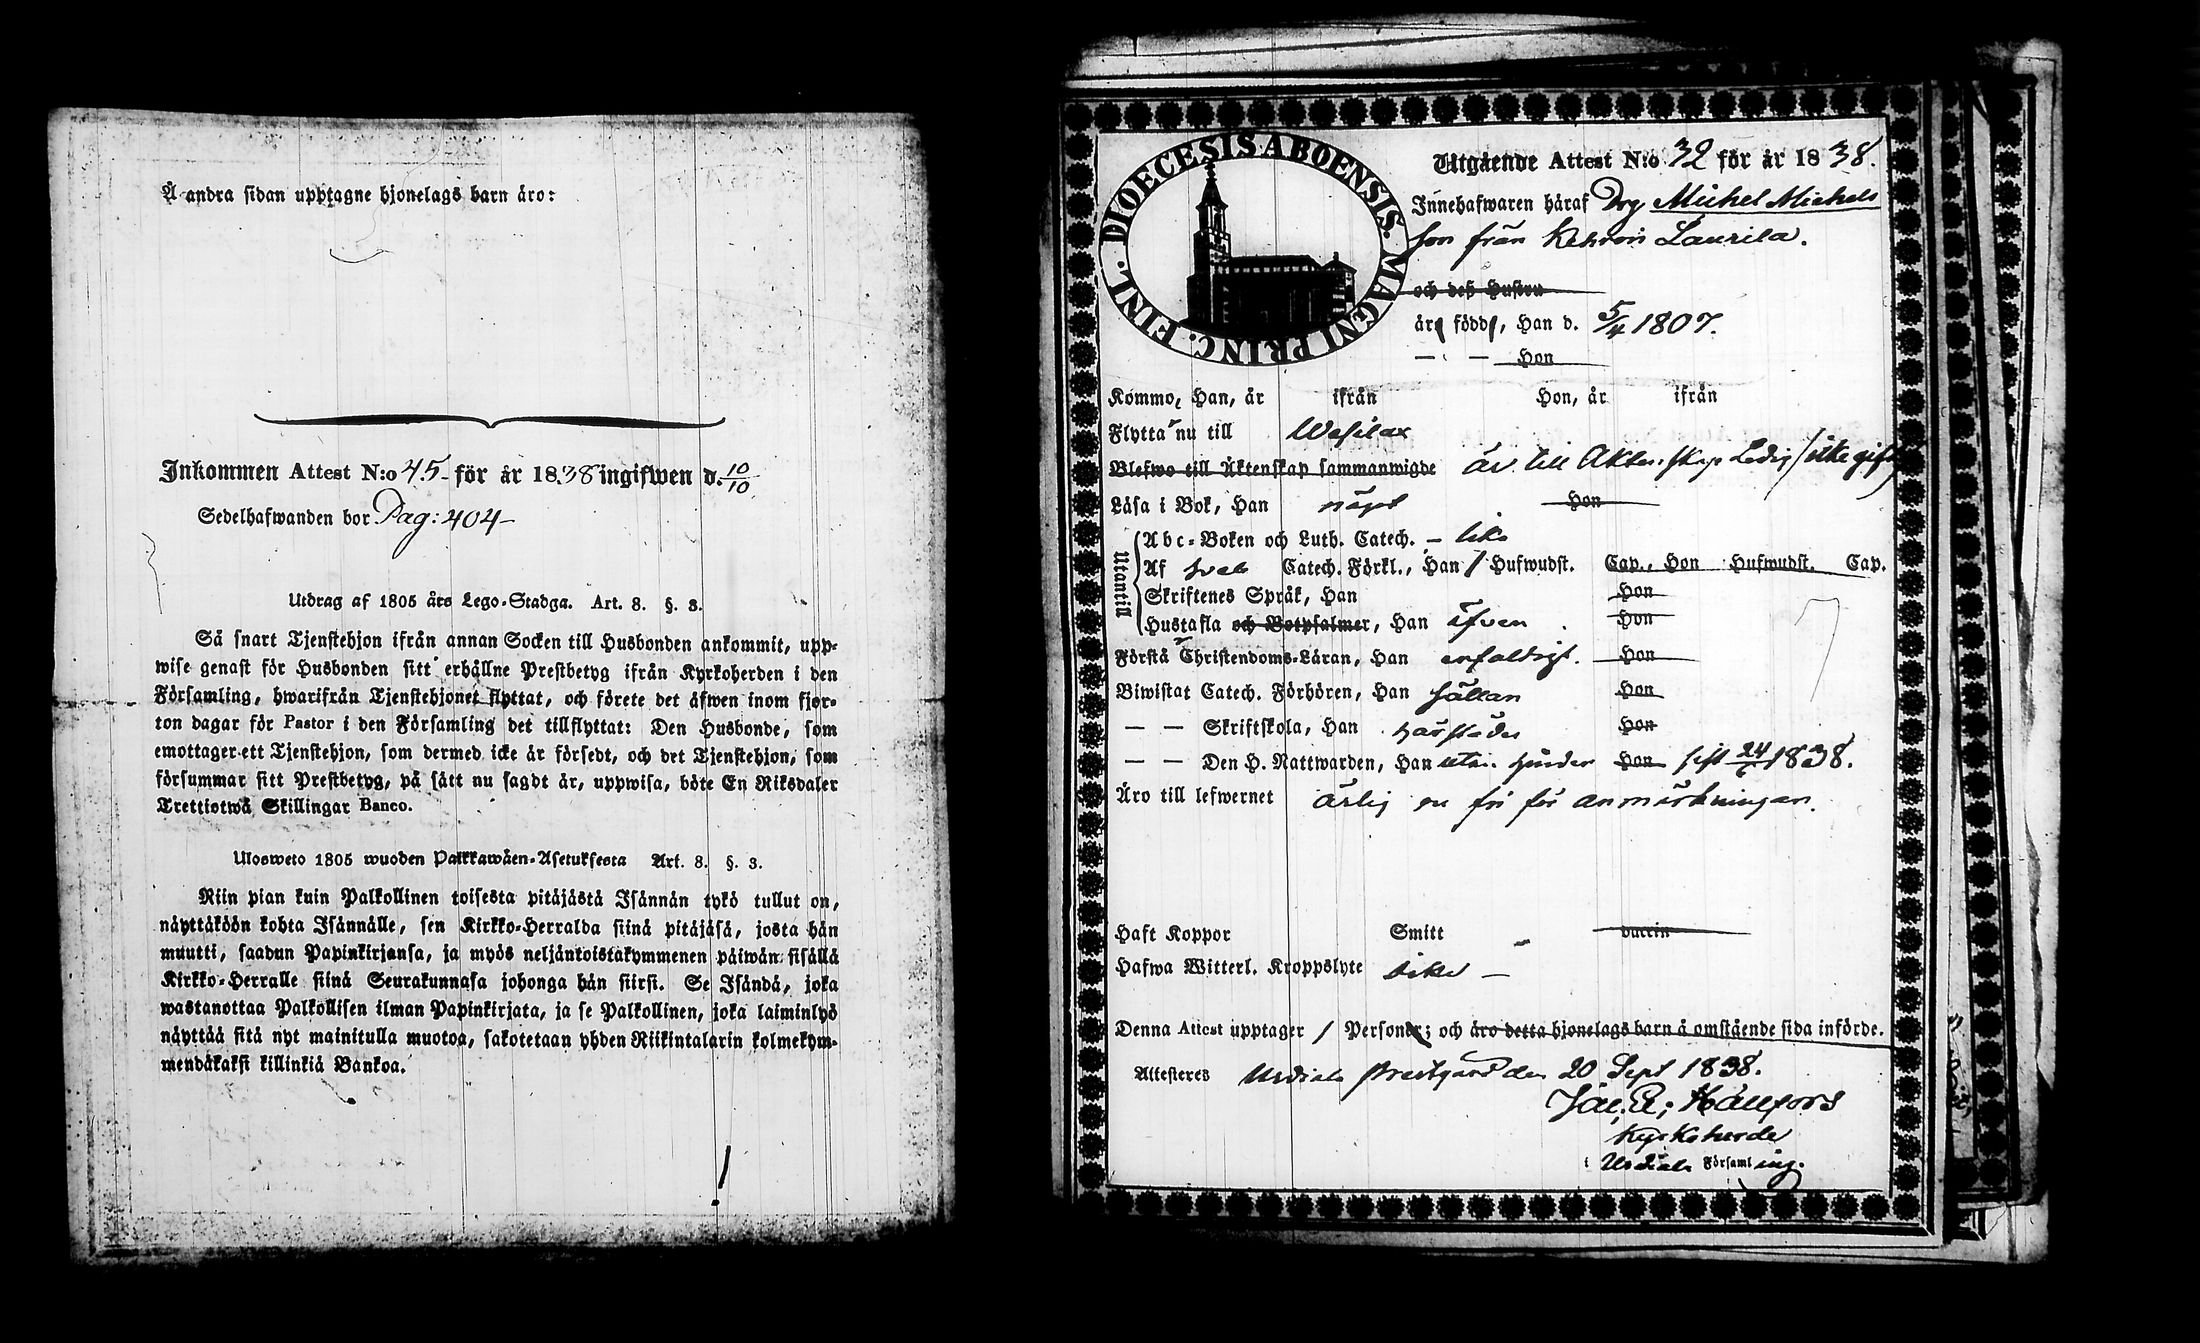 Å andra sidan upptagne hjonelags barn äro:
Inkommen Attest N:o 45 för år 1838 ingifwen d. 10/10
Sedelhafwanden bor Pag: 404
Utdrag af 1805 års Lego-Stadga. Art. 8. §. 3.
Så snart Tjenstehjon ifrån annan Socken till Husbonden ankommit, upp-
wise genast för Husbonden sitt erhållne Prestbetyg ifrån Kyrkoherden i den
Församling, hwarifrån Tjenstehjonet flyttat, och förete det äfwen inom fjor-
ton dagar för Pastor i den Församling det tillflyttat: Den Husbonde, som
emottager ett Tjenstehjon, som dermed icke är försedt, och det Tjenstehjon, som
försummar sitt Prestbetyg, på sätt nu sagdt är, uppwisa, böte En Riksdaler
Trettiotwå Skillingar Banco.
Ulosweto 1805 wuoden Palkkawäen-Asetuksesta Art. 8. §. 3.
Niin pian kuin Palkollinen toisesta pitäjästä Isännän tykö tullut on,
näyttäköön kohta Isännälle, sen Kirkko-Herralda siinä pitäjäsä, josta hän
muutti, saadun Papinkirjansa, ja myös neljäntoistakymmenen päiwän sisällä
Kirkko-Herralle siinä Seurakunnasa johonga hän siirsi. Se Isändä, joka
wastanottaa Palkollisen ilman Papinkirjata, ja se Palkollinen, joka laiminlyö
näyttää sitä nyt mainitulla muotoa, sakotetaan yhden Riikintalarin kolmekym-
mendäkaksi killinkiä Bankoa.
DIOECESIS ABOENSIS. MAGNI PRINC. FINL.
Utgående Attest N:o 32 för år 1838.
Innehafwaren häraf Drg Michel Michels
son från Laurila.
och deß Hustru
är född, Han d. 5/4 1807.
— — Hon
Kommo, Han, år ifrån Hon, år ifrån
Flytta nu till Wesilax
Blefwo till Äktenskap sammanwigde är till Äktenskap Ledig /icke gift/
Läsa i Bok, Han något Hon
Utantill
Abc-Boken och Luth. Catech. —
Af Catech. Förkl., Han / Hufwudst. Cap., Hon Hufwudst. Cap.
Skriftenes Språk, Han Hon
Hustafla och Botpsalmer, Han äfven Hon
Förstå Christendoms-Läran, Han enfaldigt. Hon
Biwistat Catech. Förhören, Han sällan Hon
— — Skriftskola, Han härstädes Hon
— — Den H. Nattwarden, Han utan hinder Hon sist 24/6 1838.
Äro till lefwernet ärlig fri för anmärkningar.
Haft Koppor Smitt — vaccin
Hafwa Witterl. Kroppslyte icke —
Denna Attest upptager 1 Personer; och äro detta hjonelags barn å omstående sida införde.
Attesteres Urdiala Prestgård den 20 Sept 1838.
Hällfors
Kyrkoherde
i Urdiala Församling.